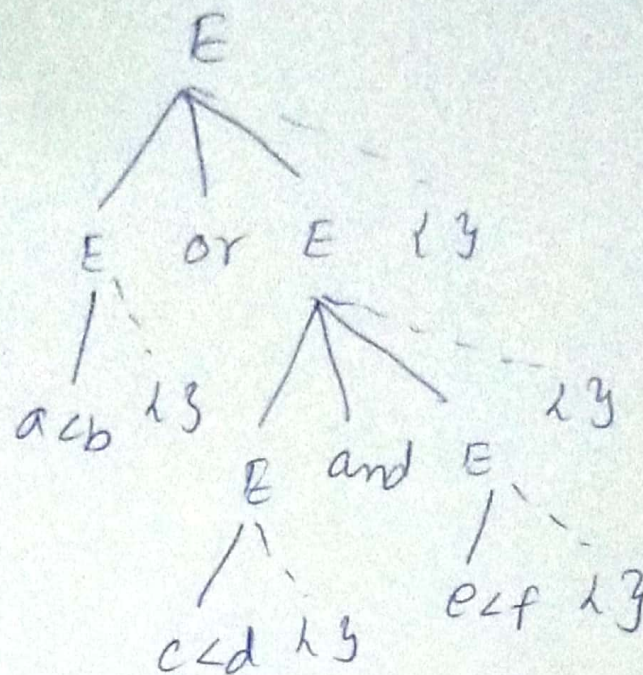 E
E or E { }
a<b { } { }
E and E
c<d { } e<f { }